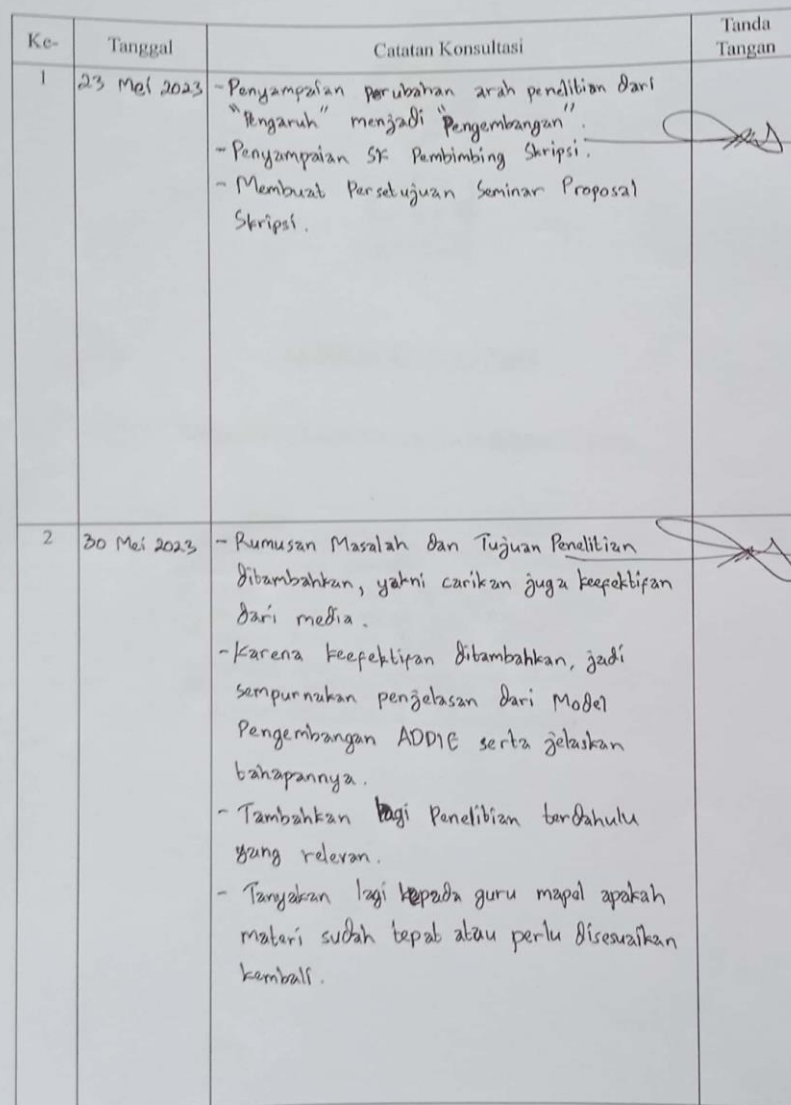 Ke- Tanggal Catatan Konsultasi Tanda Tangan
1 23 Mei 2023 - Penyampaian perubahan arah penelitian dari
"Pengaruh" menjadi "Pengembangan".
- Penyampaian SK Pembimbing Skripsi.
- Membuat Persetujuan Seminar Proposal
Skripsi.
2 30 Mei 2023 - Rumusan Masalah dan Tujuan Penelitian
ditambahkan, yakni carikan juga keefektifan
dari media.
- Karena keefektifan ditambahkan, jadi
sempurnakan penjelasan dari Model
Pengembangan ADDIE serta jelaskan
tahapannya.
- Tambahkan lagi Penelitian terdahulu
yang relevan.
- Tanyakan lagi kepada guru mapel apakah
materi sudah tepat atau perlu disesuaikan
kembali.